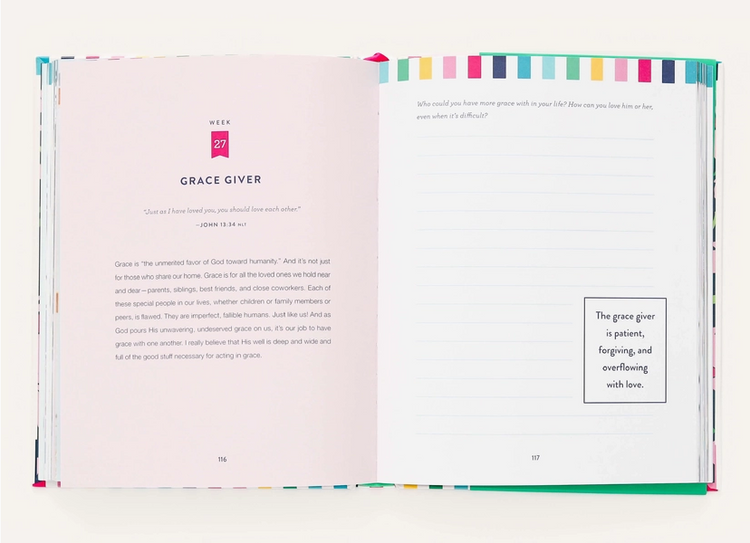 WEEK
27
GRACE GIVER
"Just as I have loved you, you should love each other."
–JOHN 13:34 NLT
Grace is "the unmerited favor of God toward humanity." And it's not just
for those who share our home. Grace is for all the loved ones we hold near
and dear—parents, siblings, best friends, and close coworkers. Each of
these special people in our lives, whether children or family members or
peers, is flawed. They are imperfect, fallible humans. Just like us! And as
God pours His unwavering, undeserved grace on us, it's our job to have
grace with one another. I really believe that His well is deep and wide and
full of the good stuff necessary for acting in grace.
116
Who could you have more grace with in your life? How can you love him or her,
even when it's difficult?
The grace giver
is patient,
forgiving, and
overflowing
with love.
117